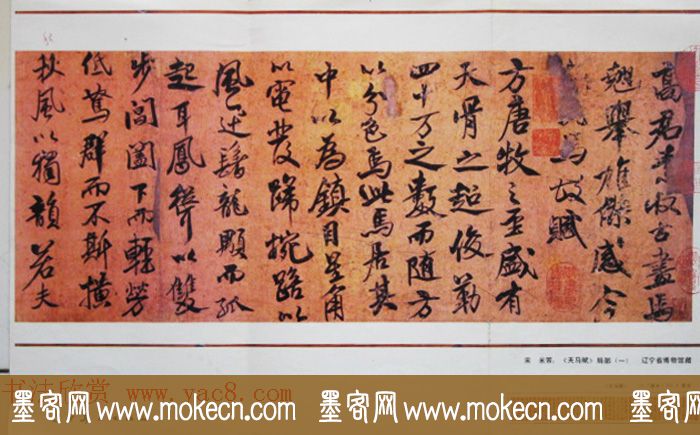 高君素收古畫馬
翹舉雄傑感今
馬故賦
方唐牧之至盛有
天骨之超俊勒
四十万之數而随方
以分色焉此馬居其
中以為鎮目星角
以電發蹄椀踣以
風迅鬐龍顒而孤
起耳鳳聳以雙
步閶闔下而輕勞
低駑群而不斯横
秋風以獨韻若夫
宋 米芾，《天马赋》局部（一） 辽宁省博物馆藏
书法欣赏 www.yac8.com
墨客网 www.mokecn.com 墨客网 www.mokecn.com 墨客网